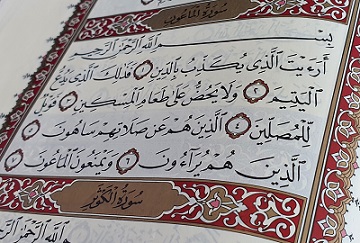 سُورَةُ الْمَاعُونِ
بِسْمِ اللَّهِ الرَّحْمَٰنِ الرَّحِيمِ
أَرَءَيْتَ الَّذِى يُكَذِّبُ بِالدِّينِ ١ فَذَٰلِكَ الَّذِى يَدُعُّ
الْيَتِيمَ ٢ وَلَا يَحُضُّ عَلَىٰ طَعَامِ الْمِسْكِينِ ٣ فَوَيْلٌ
لِلْمُصَلِّينَ ٤ الَّذِينَ هُمْ عَنْ صَلَاتِهِمْ سَاهُونَ ٥
الَّذِينَ هُمْ يُرَآءُونَ ٦ وَيَمْنَعُونَ الْمَاعُونَ ٧
سُورَةُ الْكَوْثَرِ
اللَّهِ الرَّحْمَٰنِ الرَّحِيمِ